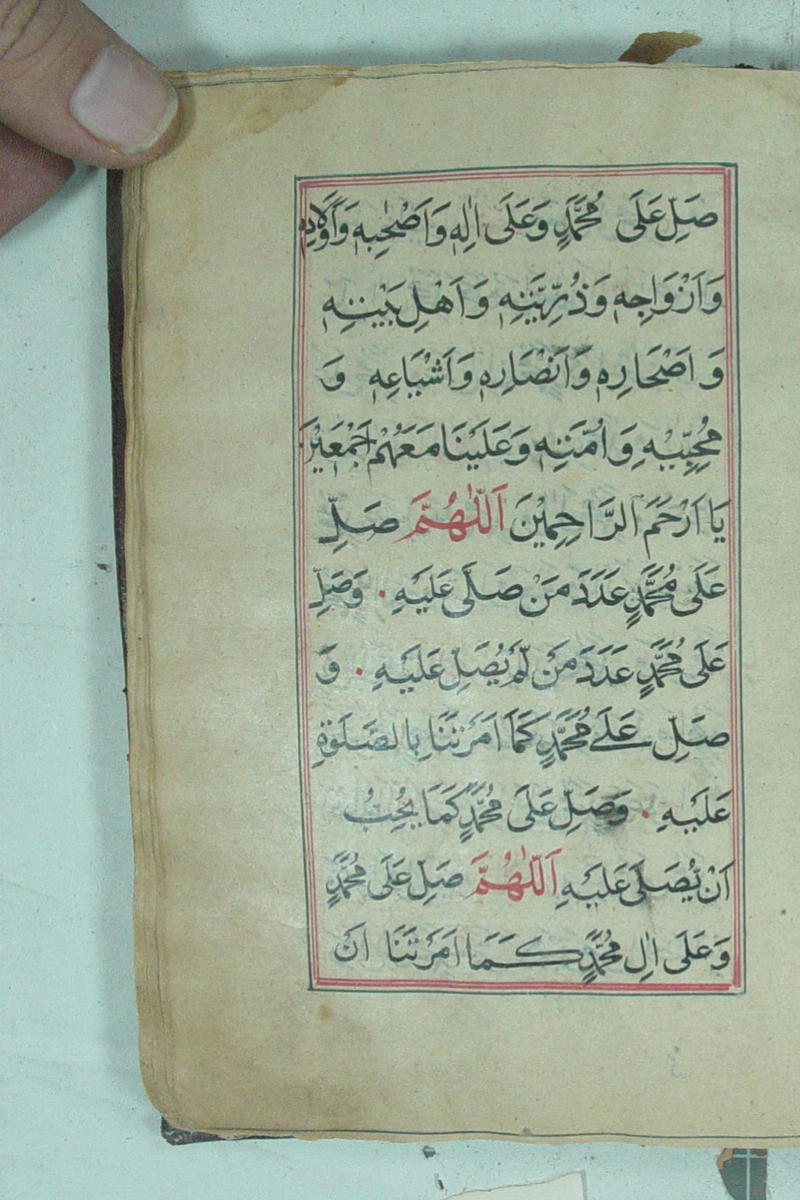 صَلِّ عَلَى مُحَمَّدٍ وَعَلَى اٰلِهٖ وَاَصْحٰبِهٖ وَاَوْلَادِهٖ
وَاَزْوَاجِهٖ وَذُرِّيَّتِهٖ وَاَهْلِ بَيْتِهٖ
وَاَصْحَارِهٖ وَاَنْصَارِهٖ وَاَشْيَاعِهٖ وَ
مُحِبِّيْهِ وَاُمَّتِهٖ وَعَلَيْنَا مَعَهُمْ اَجْمَعِيْنَ
يَا اَرْحَمَ الرَّاحِمِيْنَ اَللّٰهُمَّ صَلِّ
عَلَى مُحَمَّدٍ عَدَدَ مَنْ صَلَّى عَلَيْهِ ۰ وَصَلِّ
عَلَى مُحَمَّدٍ عَدَدَ مَنْ لَّمْ يُصَلِّ عَلَيْهِ ۰ وَ
صَلِّ عَلَے مُحَمَّدٍ كَمَا اَمَرْتَنَا بِالصَّلٰوةِ
عَلَيْهِ ۰ وَصَلِّ عَلَى مُحَمَّدٍ كَمَا يُحِبُّ
اَنْ يُّصَلَّى عَلَيْهِ اَللّٰهُمَّ صَلِّ عَلَى مُحَمَّدٍ
وَعَلَى اٰلِ مُحَمَّدٍ كَمَا اَمَرْتَنَا اَنْ